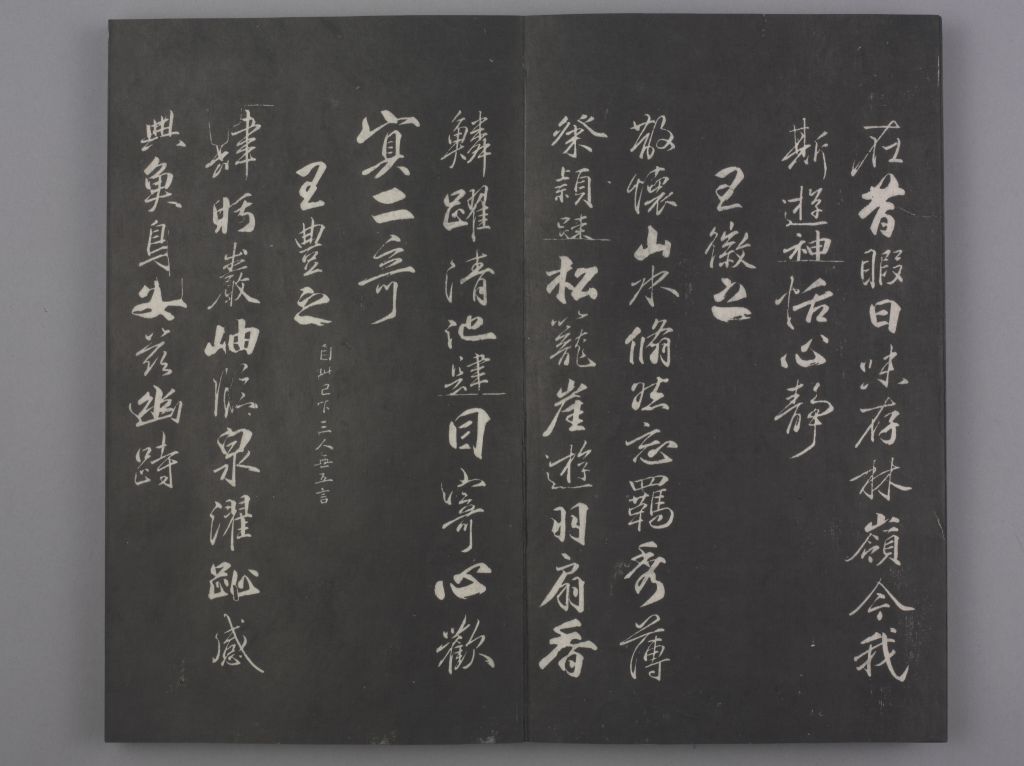 在昔暇日味存林嶺今我
斯遊神恬心靜
王徽之
散懷山水翛然忘羈秀薄
粲穎踈松籠崖遊羽扇香
鱗躍清池目寄心歡
冥二奇
王豊之
自此已下三人無五言
肆眄巖岫臨泉濯趾感
興魚鳥安茲幽跱